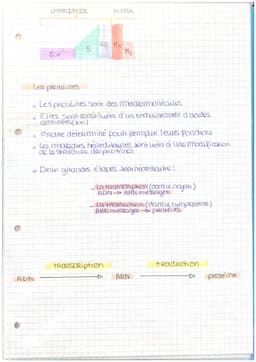 interphase mitose
G1 S G2 M1 M2
Les protéines
Les protéines sont des macromolécules
Elles sont constituées d'un enchainement d'acides
aminés
Ordre déterminé pour remplir leurs fonctions
Les maladies héréditaires sont liées à une modification
de la structure des protéines
Deux grandes étapes sont nécessaires :
La transcription (dans le noyau)
ADN → ARN messager
La traduction (dans le cytoplasme)
ARN messager → protéine
transcription traduction
ADN → ARN → protéine